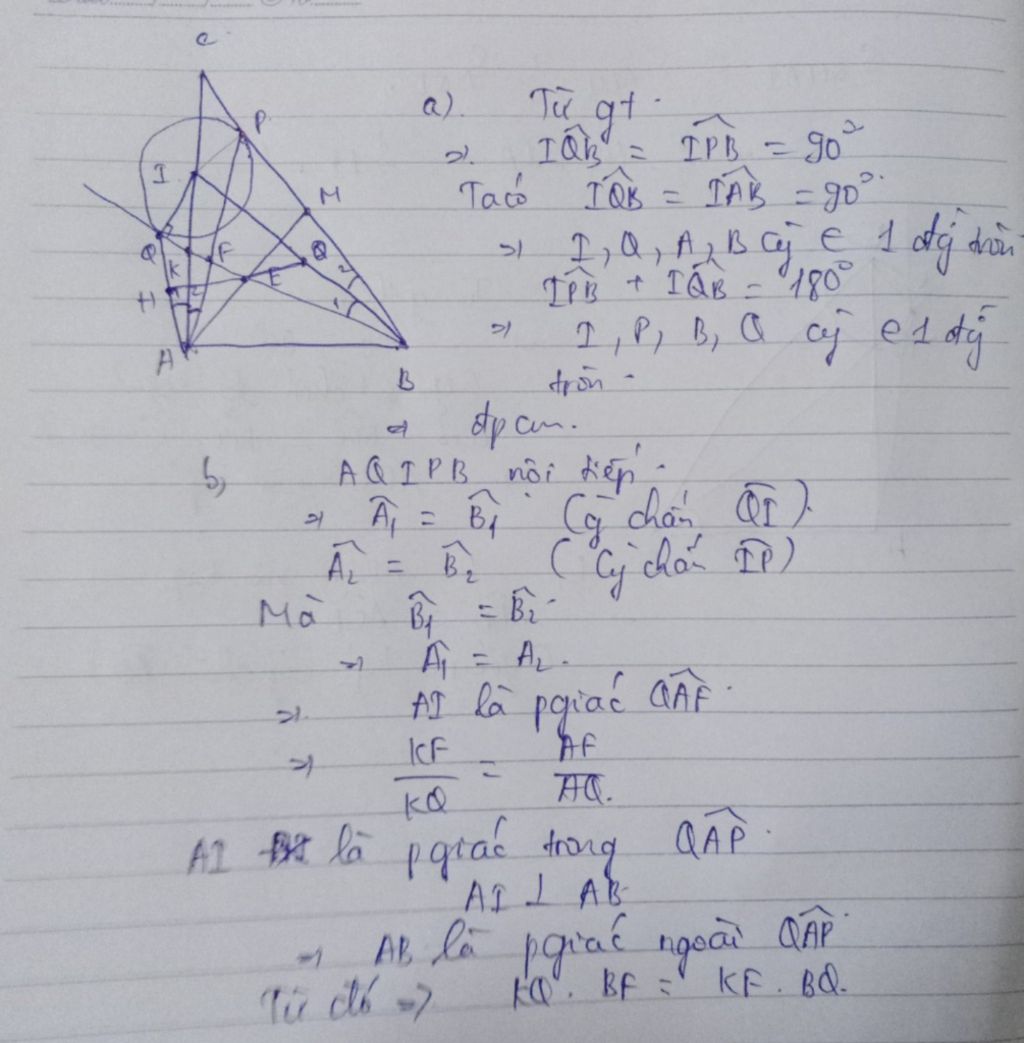 C
P
I
M
Q
K
F
Q
H
E
2
1
1
2
A
B
a). Từ gt.
=> IQ̂B = IP̂B = 90°
Ta có IQ̂B = IÂB = 90°.
=> I, Q, A, B cg ∈ 1 đg tròn
IP̂B + IQ̂B = 180°
=> I, P, B, Q cg ∈ 1 đg
tròn.
=> đpcm.
b, AQIPB nội tiếp.
=> Â₁ = B̂₁ (cg chắn QI).
Â₂ = B̂₂ (cg chắn IP)
Mà B̂₁ = B̂₂.
=> Â₁ = A₂.
=> AI là pgiác QÂF.
=> KF/KQ = AF/AQ.
AI là pgiác trong QÂP.
AI ⊥ AB
=> AB là pgiác ngoài QÂP.
Từ đó => KQ. BF = KF. BQ.